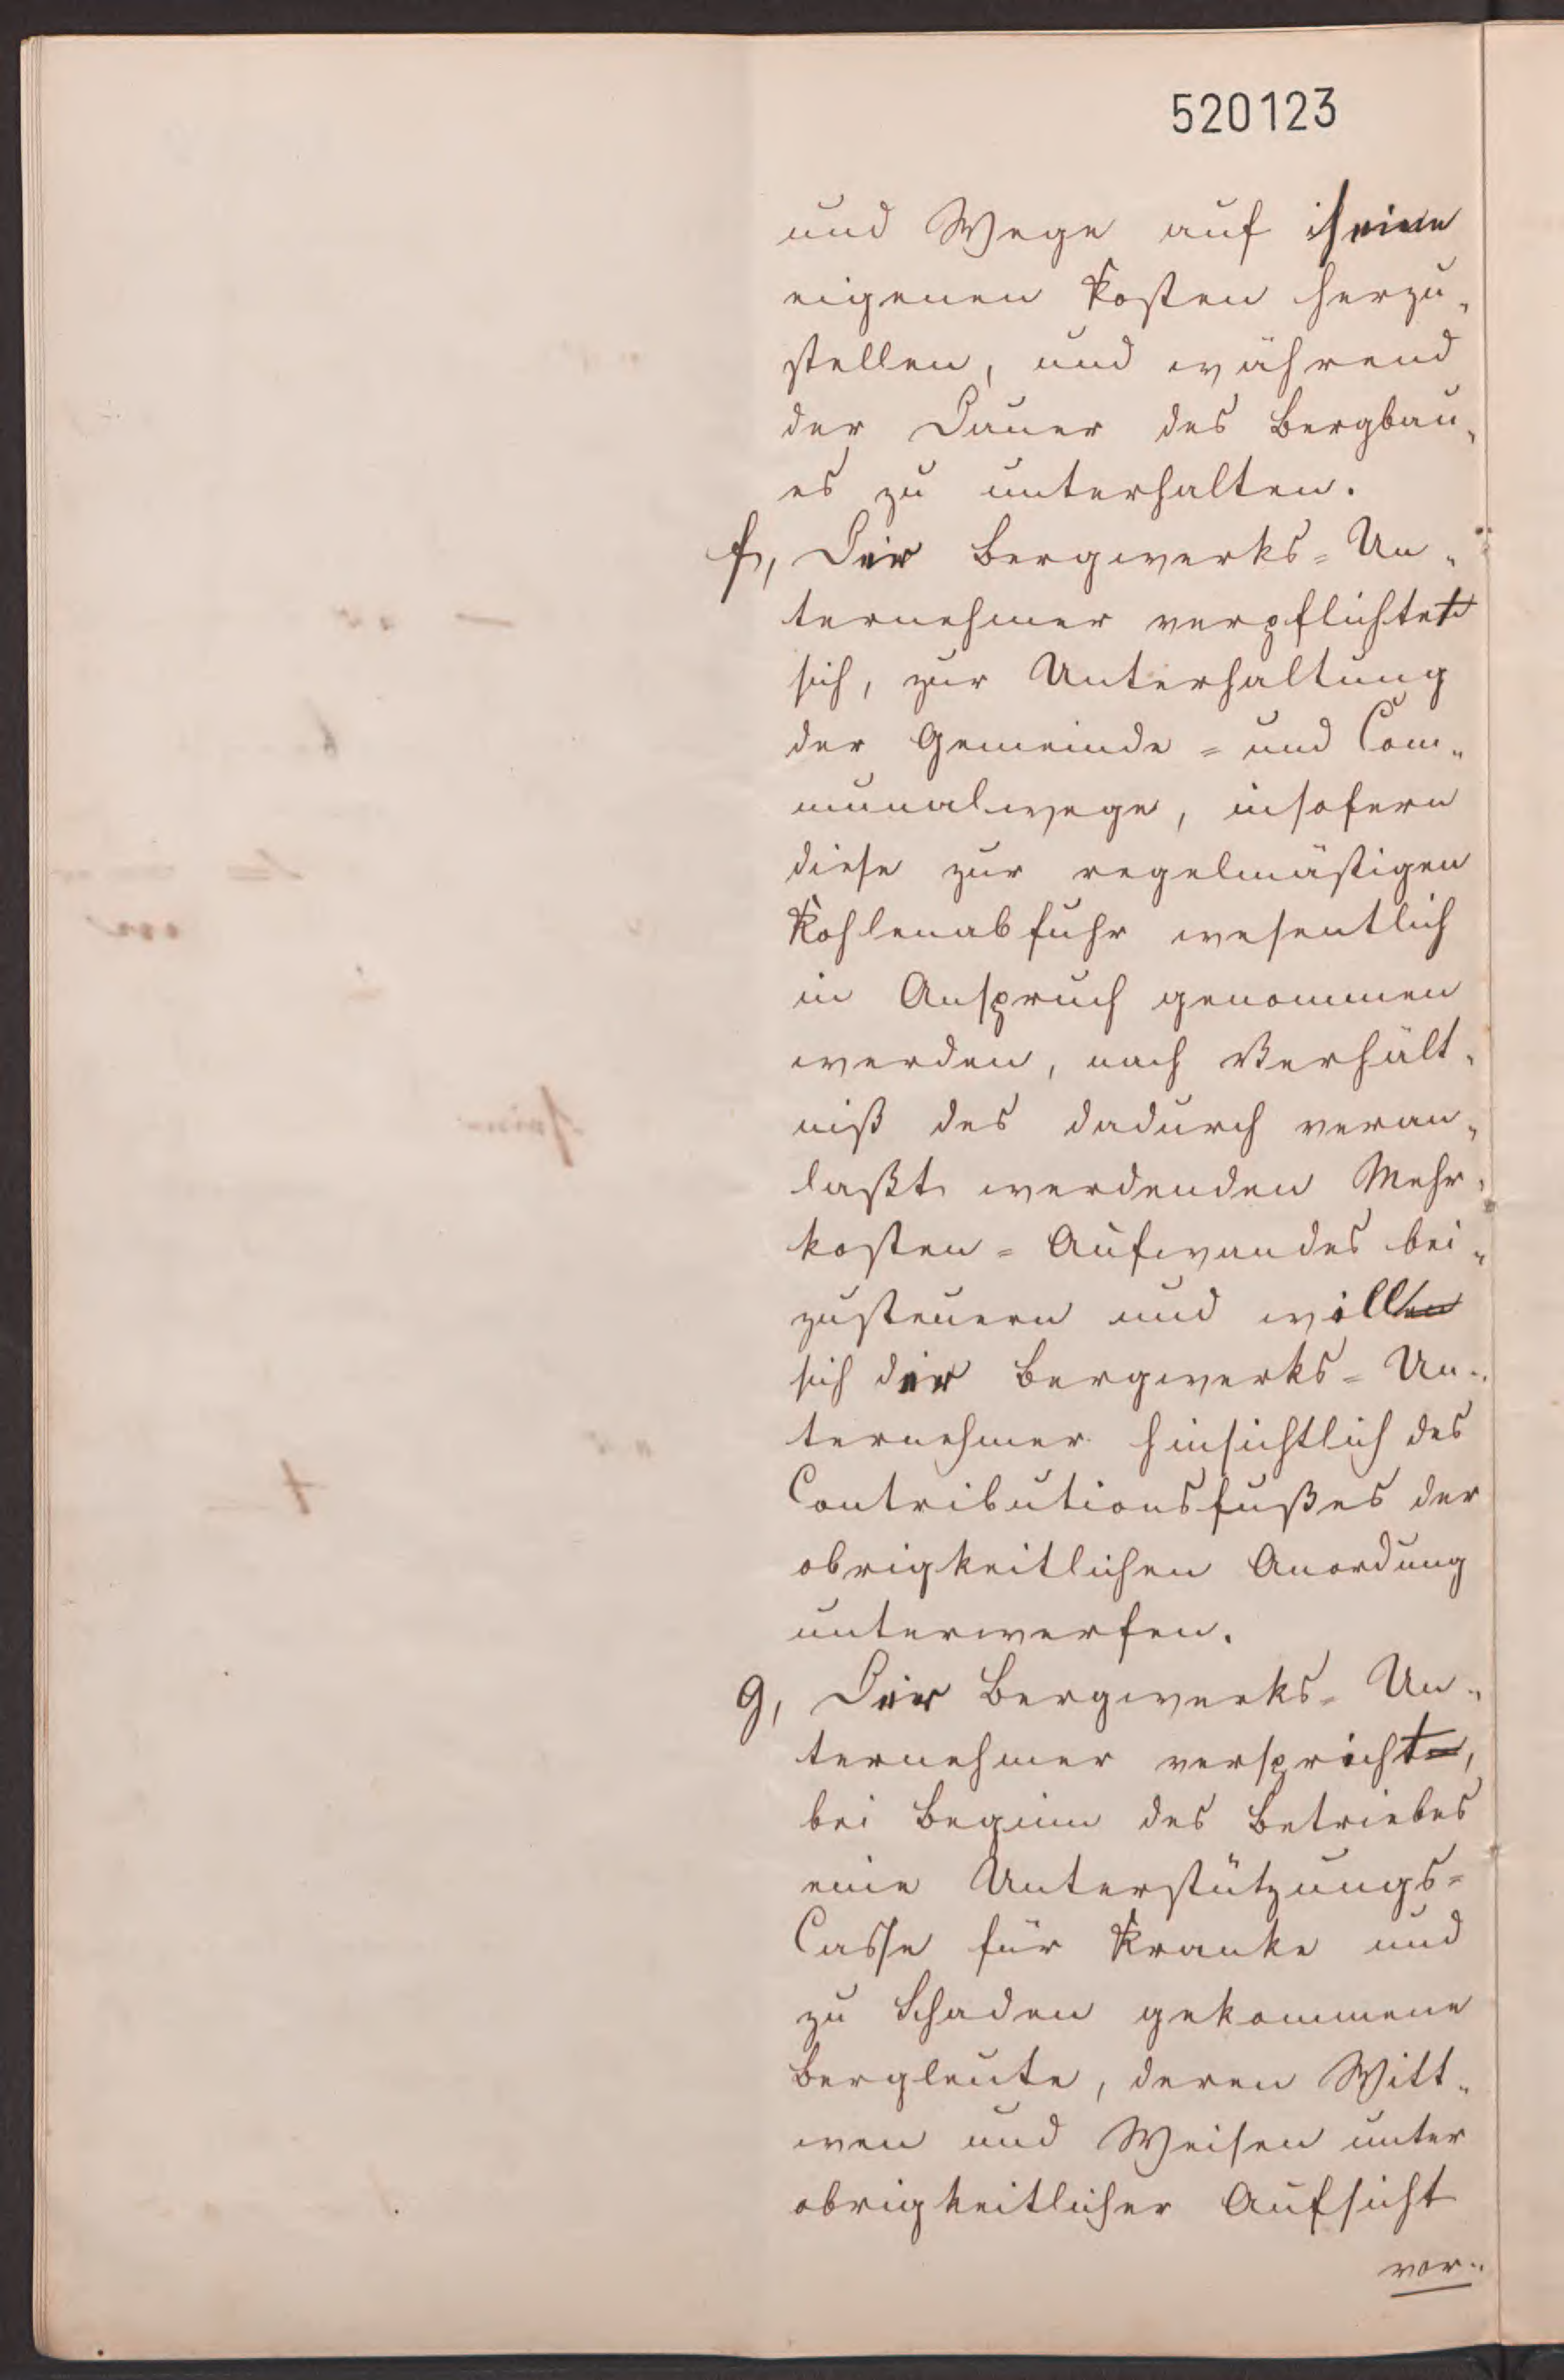 520123
und Wege auf seine
eigenen Kosten herzu„
stellen, und während
der Dauer des Bergbau„
es zu unterhalten.
f, Der Bergwerks=Un„
ternehmer verpflichtet
sich, zur Unterhaltung
der Gemeinde= und Com„
munalwege, insofern
diese zur regelmäßigen
Kohlenabfuhr wesentlich
in Anspruch genommen
werden, nach Verhält„
niß des dadurch veran„
laßt werdenden Mehr„
kosten=Aufwandes bei„
zusteuern und will
sich der Bergwerks=Un„
ternehmer hinsichtlich des
Contributionsfußes der
obrigkeitlichen Anordung
unterwerfen.
g, Der Bergwerks=Un„
ternehmer verspricht,
bei Beginn des Betriebes
eine Unterstützungs=
Casse für Kranke und
zu Schaden gekommene
Bergleute, deren Witt„
wen und Weisen unter
obrigkeitlicher Aufsicht
vor„